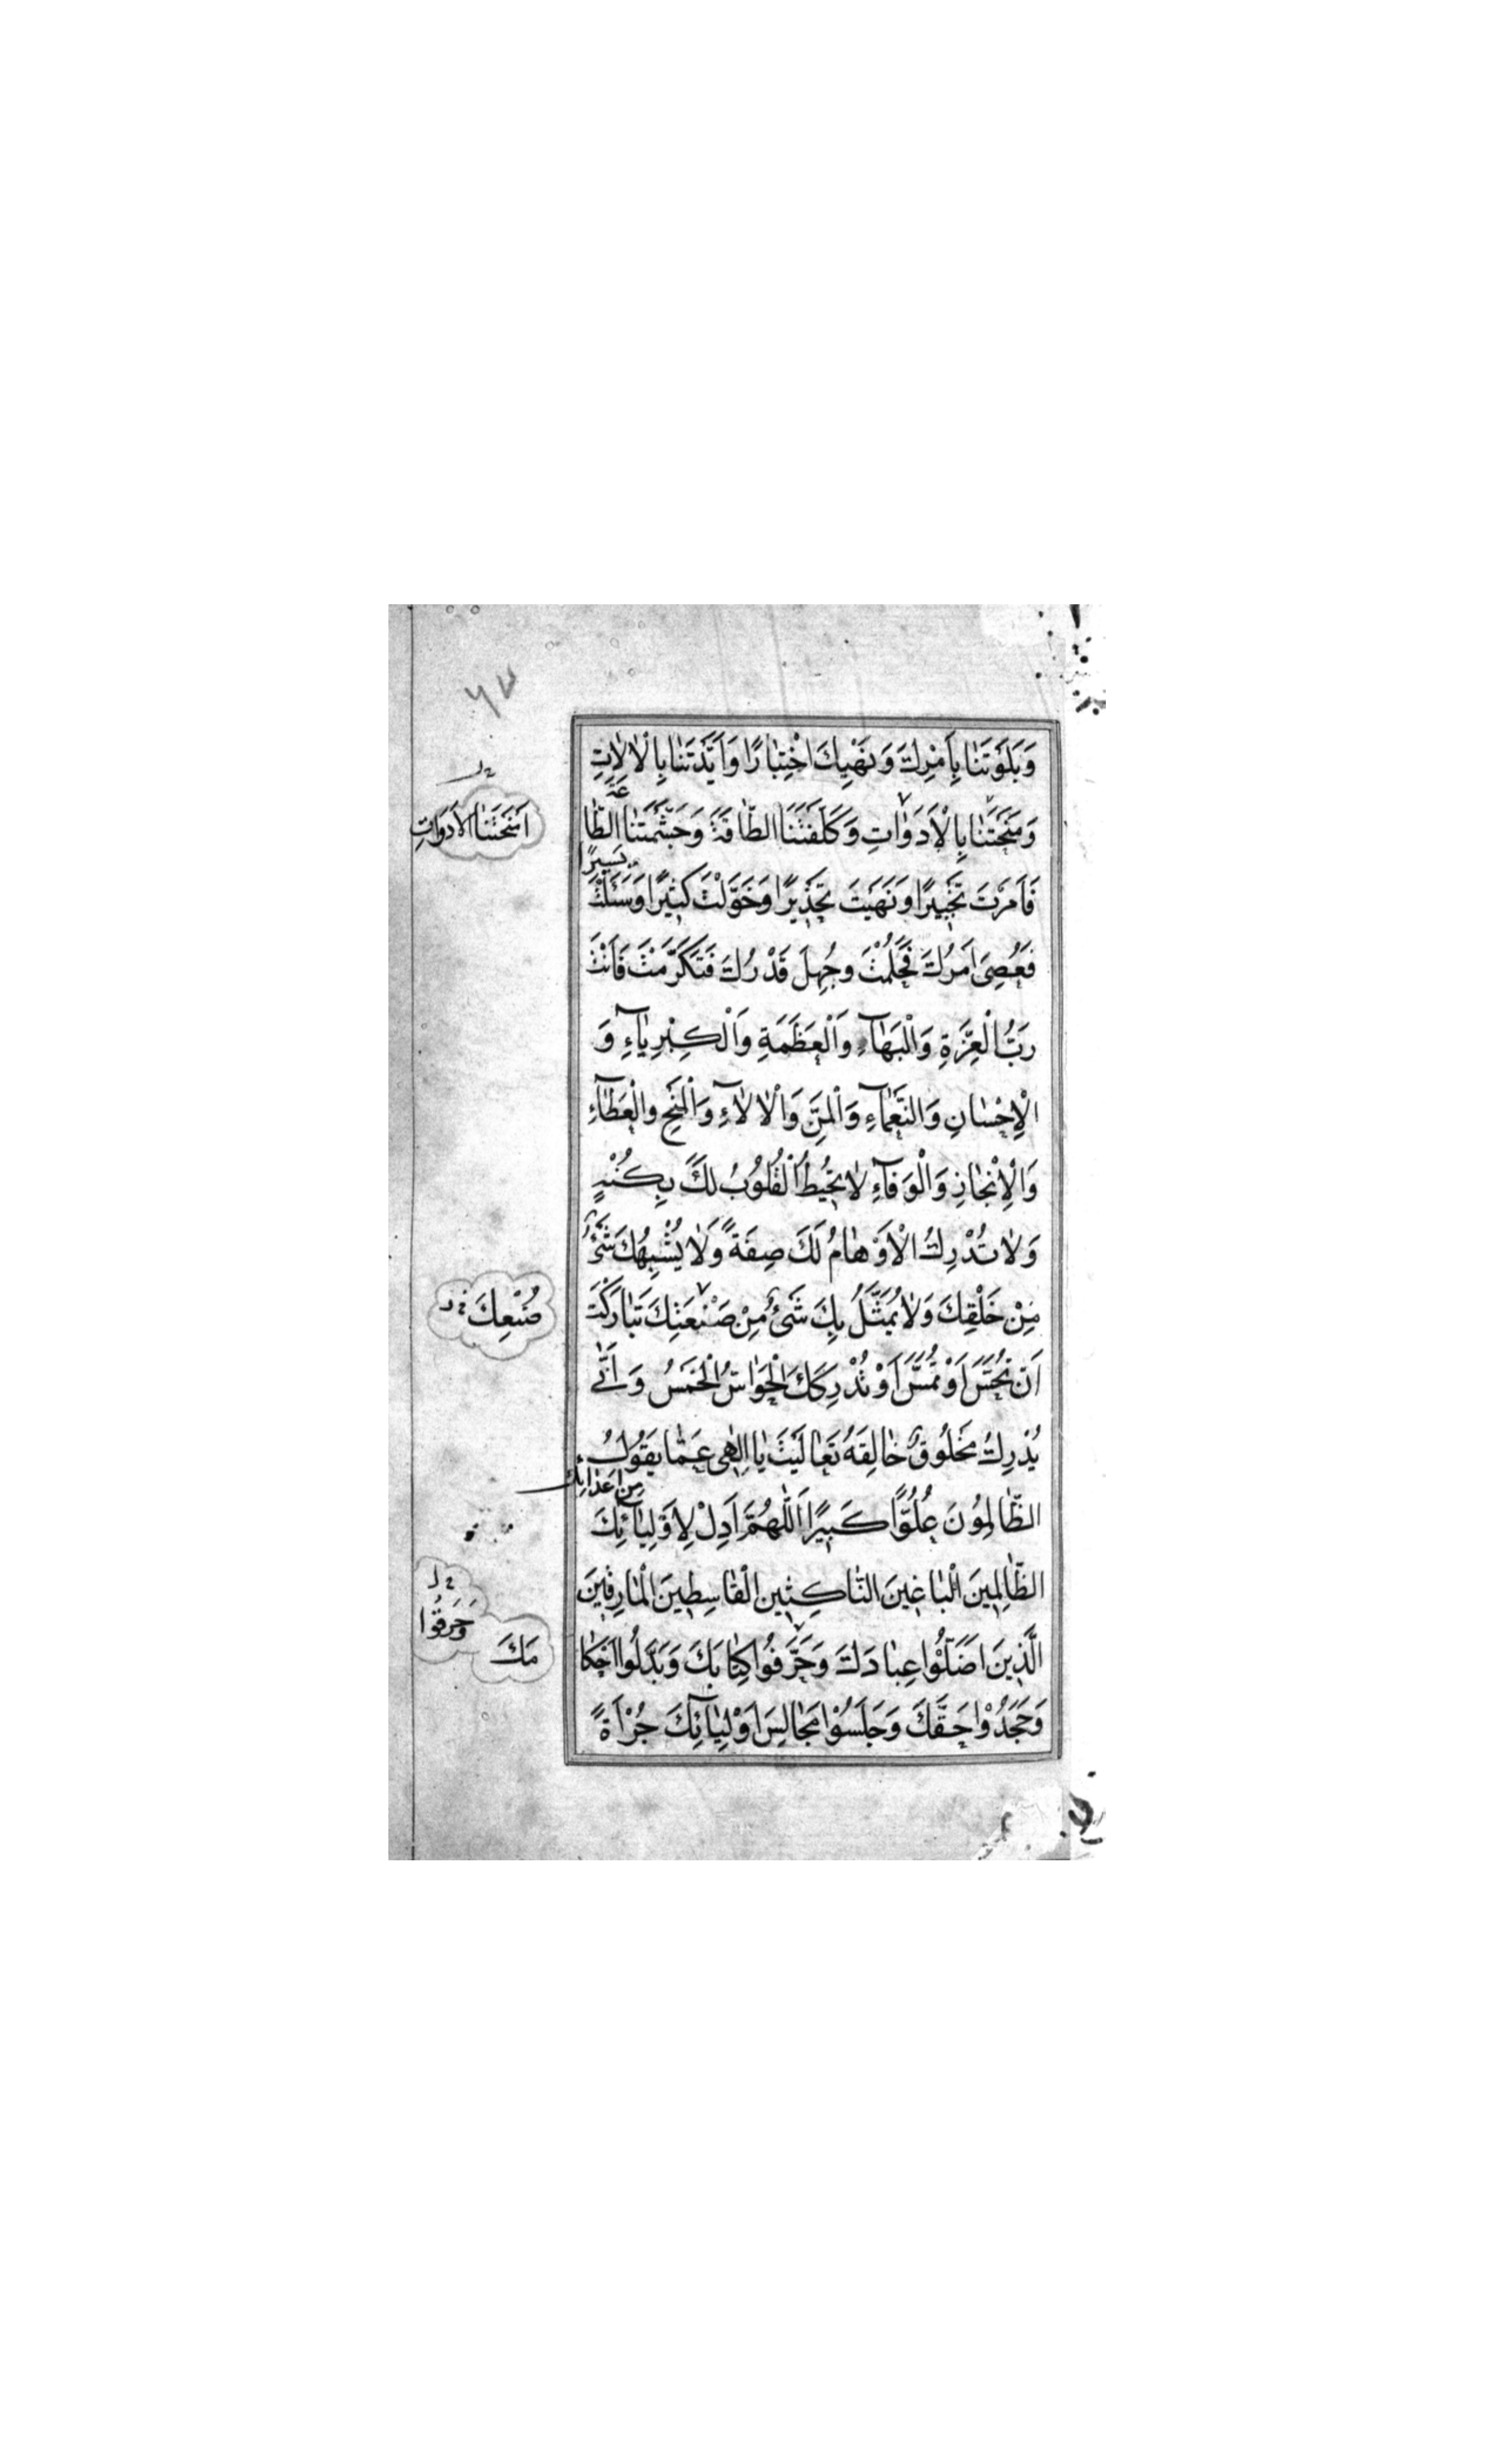 ٦٧
وَبَلَوْتَنَا بِاَمْرِكَ وَنَهْيِكَ اخْتِبَارًا وَاَيَّدْتَنَا بِالْاٰلَاتِ
وَمَنَحْتَنَا بِالْاَدَوَاتِ وَكَلَّفْتَنَا الطَّاقَةَ وَجَشَّمْتَنَا الطَّاعَةَ
اَمْنَحْتَنَا الْاَدَوَاتِ
فَاَمَرْتَ تَخْيِيرًا وَنَهَيْتَ تَحْذِيرًا وَخَوَّلْتَ كَثِيرًا وَسَئَلْتَ يَسِيرًا
فَعُصِىَ اَمْرُكَ فَحَلُمْتَ وَجُهِلَ قَدْرُكَ فَتَكَرَّمْتَ فَاَنْتَ
رَبُّ الْعِزَّةِ وَالْبَهَاۤءِ وَالْعَظَمَةِ وَالْكِبْرِيَاۤءِ وَ
الْاِحْسَانِ وَالنَّعْمَاۤءِ وَالْمَنِّ وَالْاٰلَاۤءِ وَالْمِنَحِ وَالْعَطَاۤءِ
وَالْاِنْجَازِ وَالْوَفَاۤءِ لَا تُحِيطُ الْقُلُوبُ لَكَ بِكُنْهٍ
وَلَا تُدْرِكُ الْاَوْهَامُ لَكَ صِفَةً وَلَا يُشْبِهُكَ شَىْءٌ
مِنْ خَلْقِكَ وَلَا يُمَثَّلُ بِكَ شَىْءٌ مِنْ صَنْعَتِكَ تَبَارَكْتَ
صُنْعِكَ خ د
اَنْ تُحَسَّ اَوْ تُمَسَّ اَوْ تُدْرِكَكَ الْحَوَاسُّ الْخَمْسُ وَاَنّٰى
يُدْرِكُ مَخْلُوقٌ خَالِقَهُ تَعَالَيْتَ يَا اِلٰهِى عَمَّا يَقُولُ
الظَّالِمُونَ عُلُوًّا كَبِيرًا اَللّٰهُمَّ اَدِلْ لِاَوْلِيَاۤئِكَ مِنْ اَعْدَائِكَ
الظَّالِمِينَ الْبَاغِينَ النَّاكِثِينَ الْقَاسِطِينَ الْمَارِقِينَ
الَّذِينَ اَضَلُّوْا عِبَادَكَ وَحَرَّفُوا كِتَابَكَ وَبَدَّلُوا اَحْكَا
مَكَ
وَحَرَّفُوا
وَجَحَدُوْا حَقَّكَ وَجَلَسُوْا مَجَالِسَ اَوْلِيَاۤئِكَ جُرْاَةً